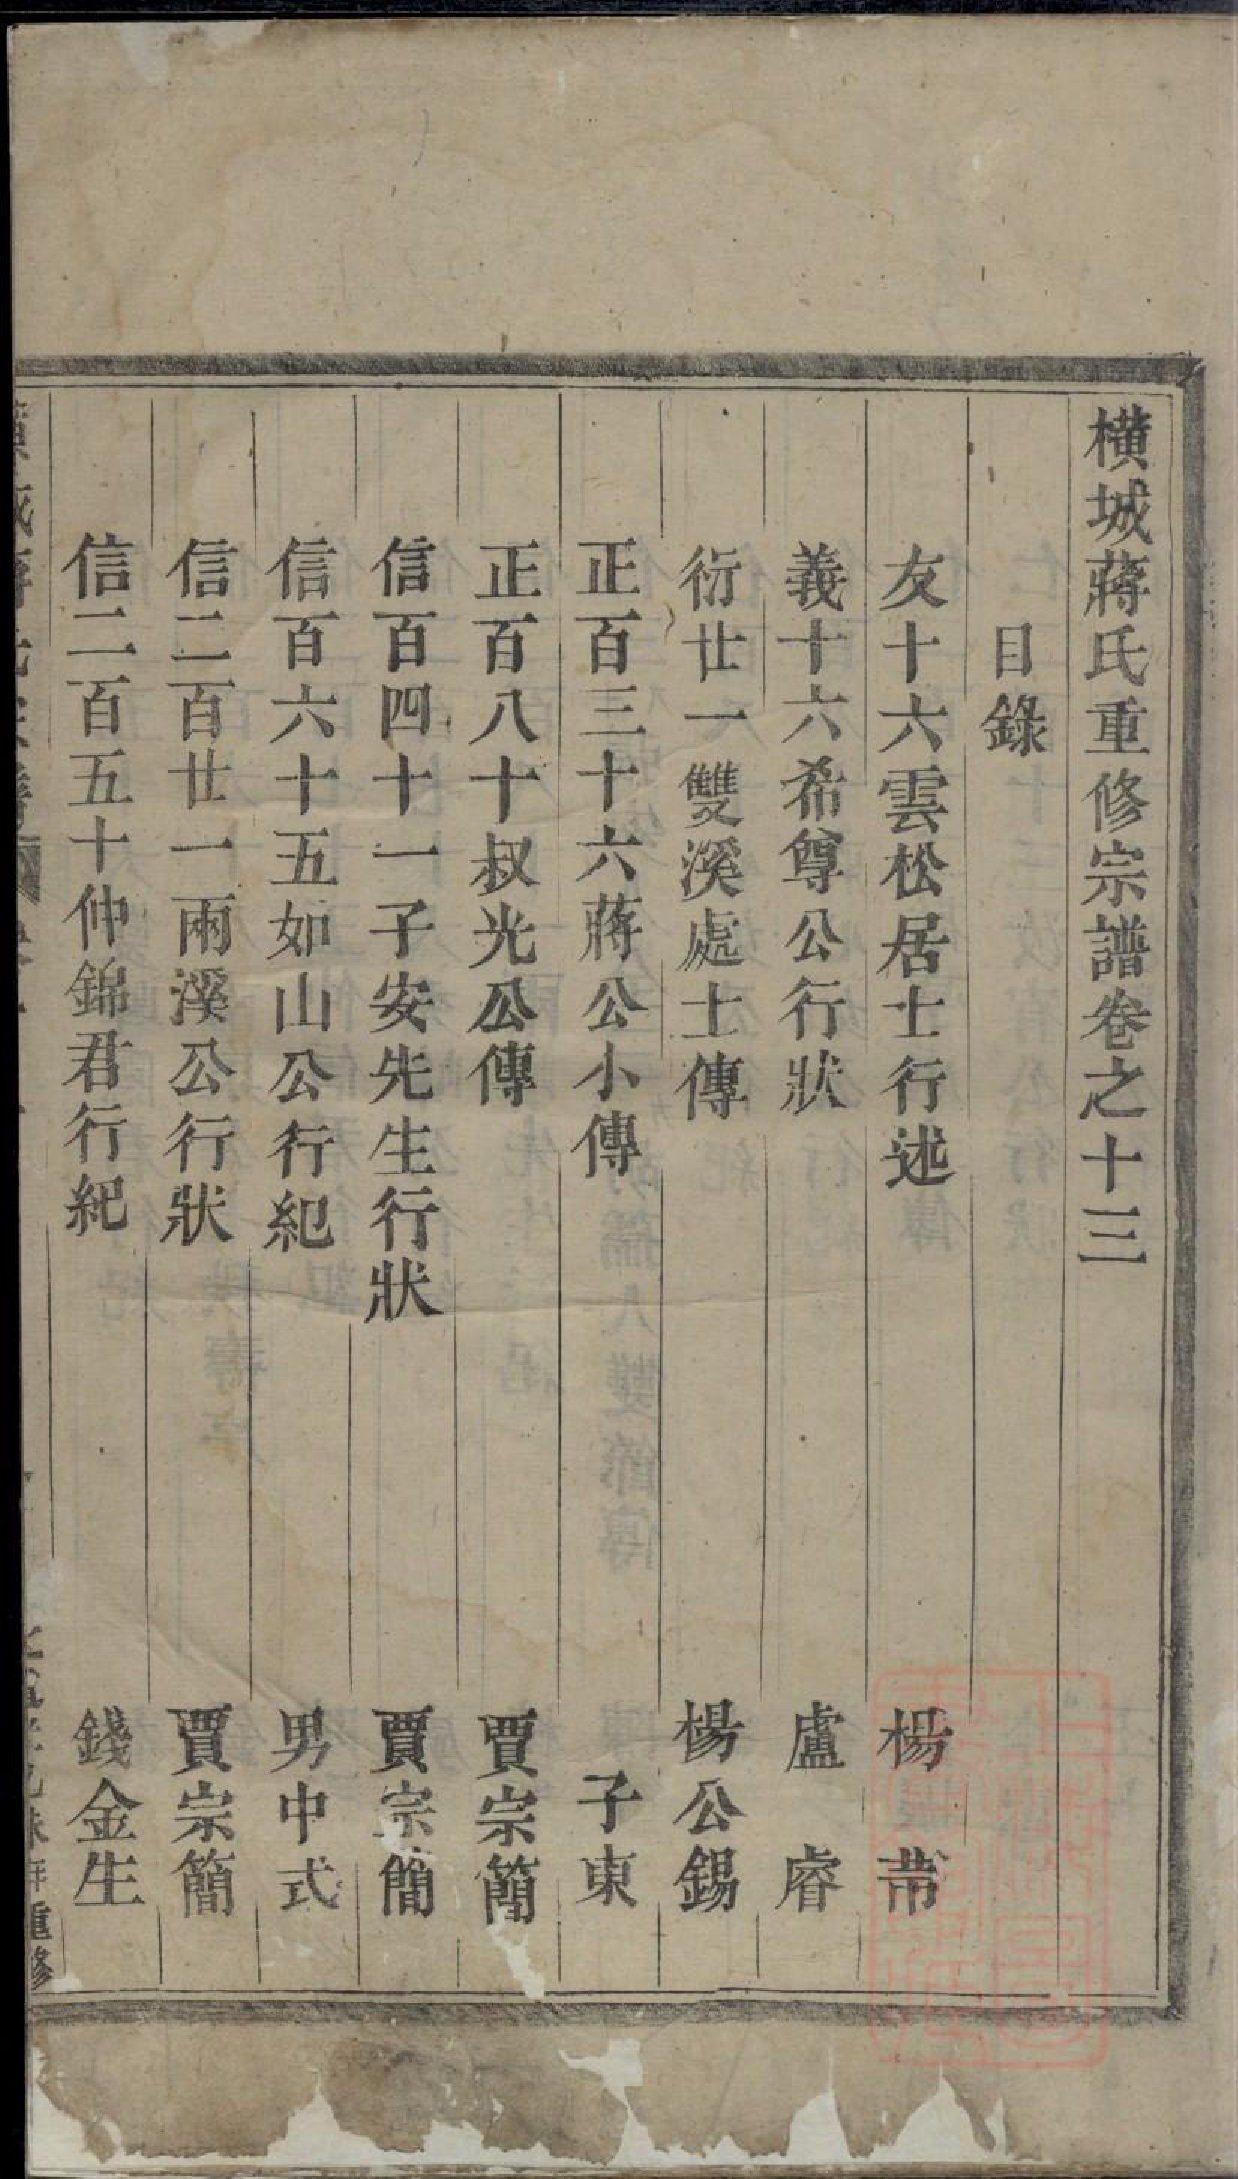 橫城蔣氏重修宗譜卷之十三
目錄
友十六雲松居士行述 楊芾
義十六希尊公行狀 盧睿
衍廿一雙溪處士傳 楊公錫
正百三十六蔣公小傳 子東
正百八十叔光公傳 賈宗簡
信百四十一子安先生行狀 賈宗簡
信百六十五如山公行紀 男中式
信二百廿一兩溪公行狀 賈宗簡
信二百五十仲錦君行紀 錢金生
重修